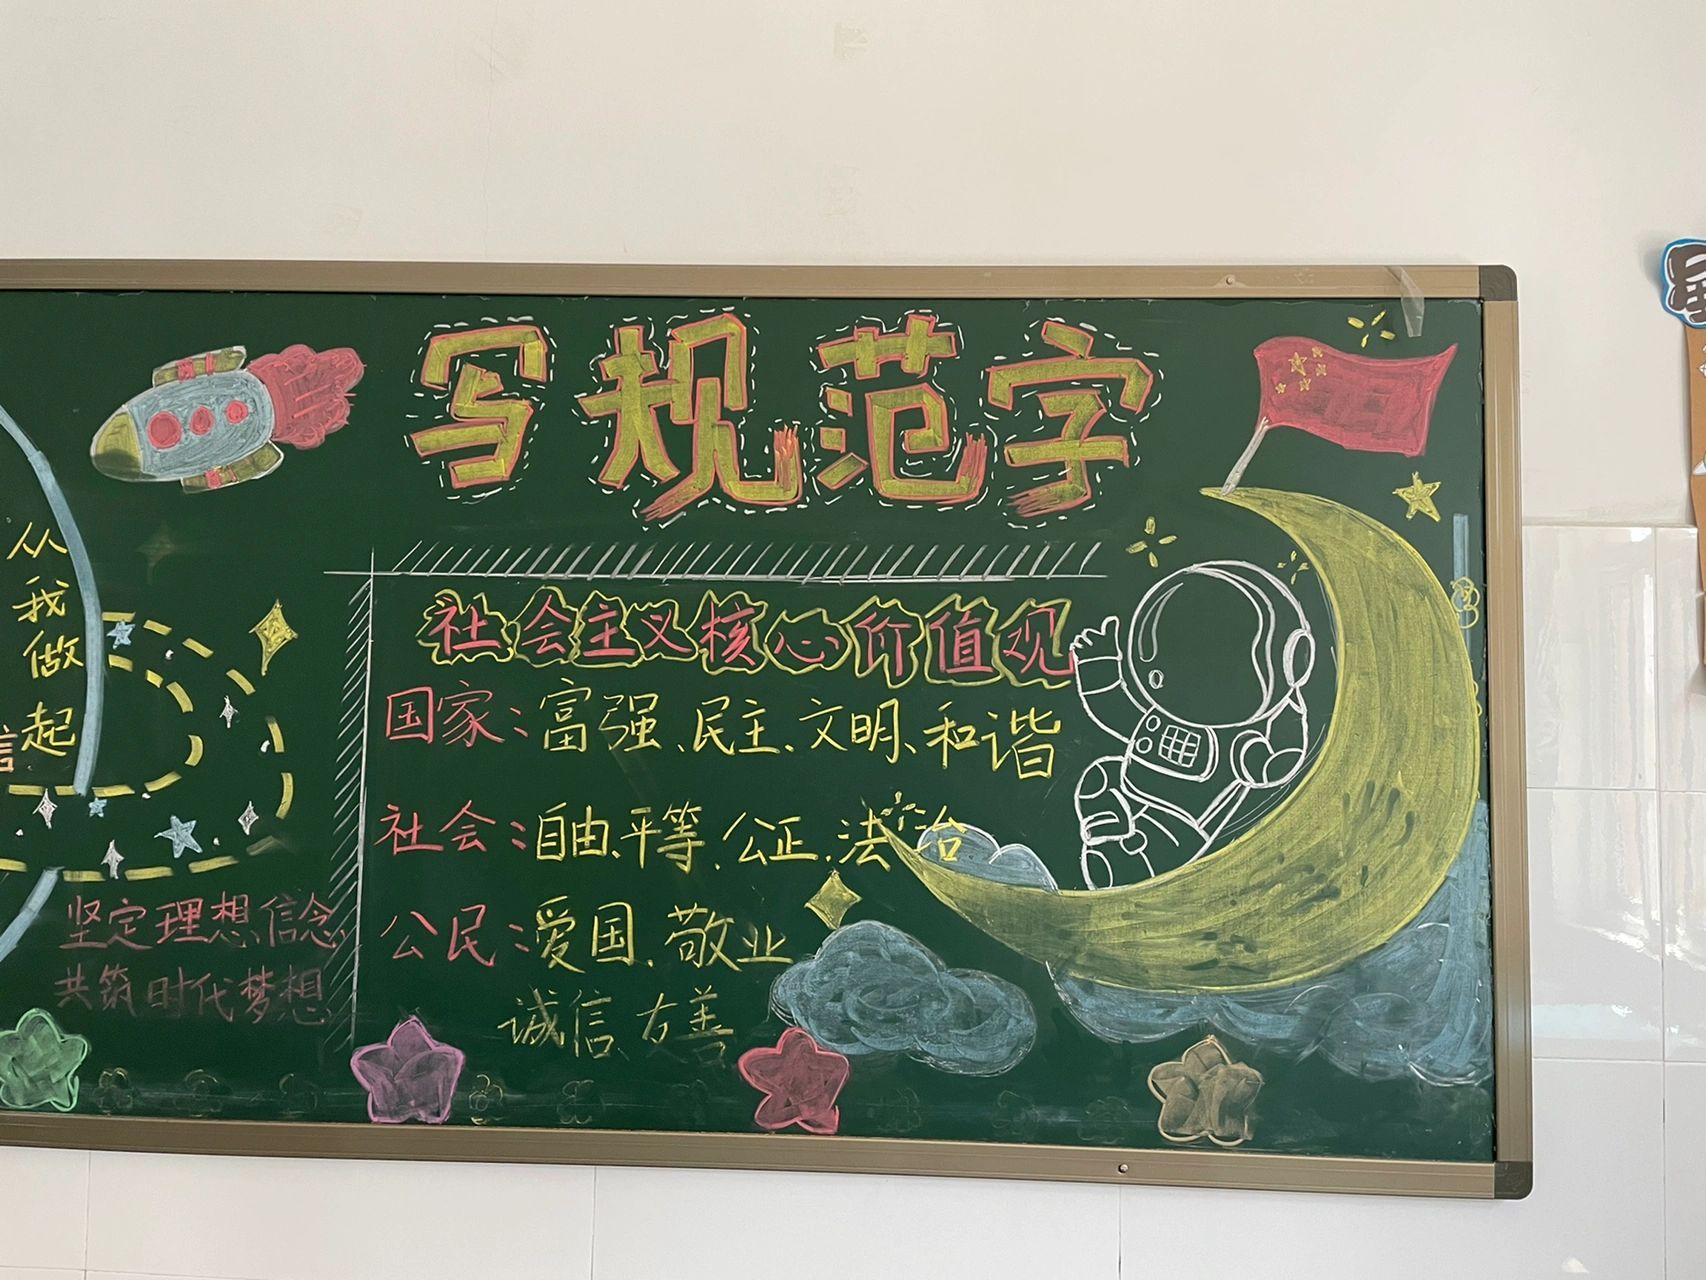 写规范字
从我做起
信
社会主义核心价值观
国家：富强、民主、文明、和谐
社会：自由、平等、公正、法治
公民：爱国、敬业
诚信、友善
坚定理想信念
共筑时代梦想